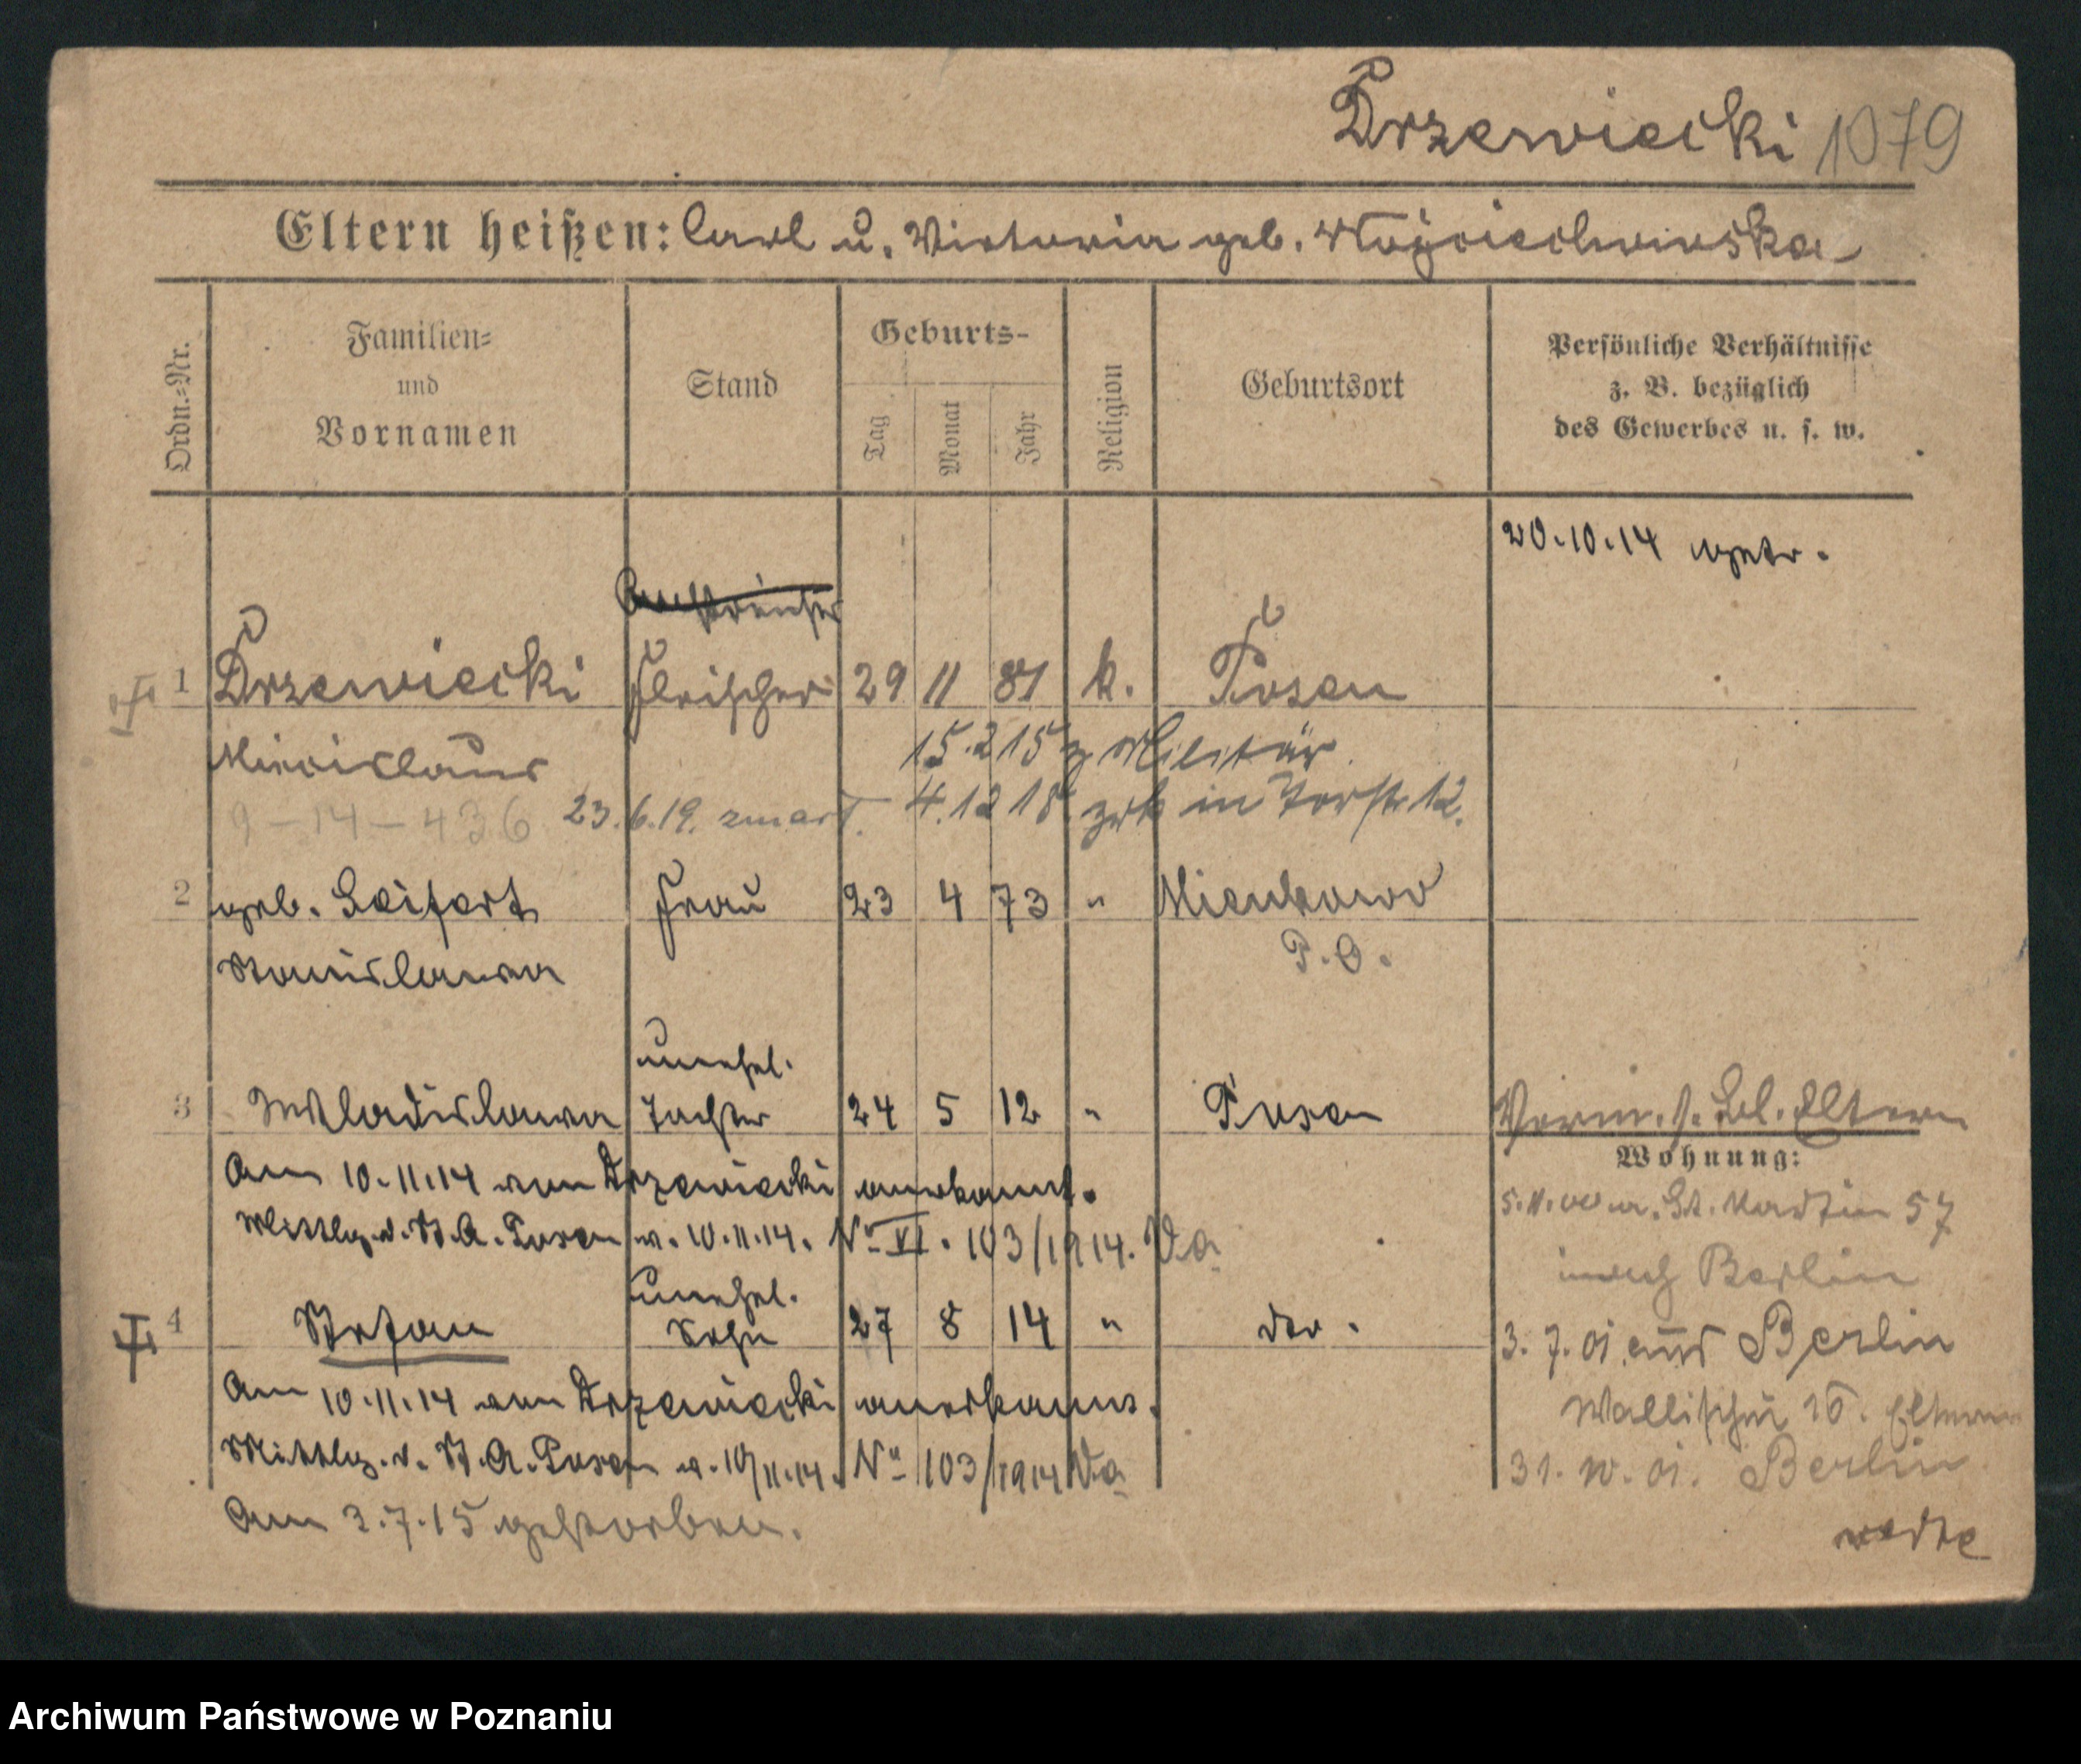 Drzewiecki 1079
Eltern heißen: Carl u. Victoria geb. Woyciechowska
Ordn.=Nr.
Familien=
und
Vornamen
Stand
Geburts-
Tag
Monat
Jahr
Religion
Geburtsort
Persönliche Verhältnisse
z. B. bezüglich
des Gewerbes u. s. w.
20.10.14 getr.
1 Drzewiecki Fleischer 29 11 81 k. Posen
Miecislaus
15.2 15 z Militär
9-14-436 23.6.19. zmarł. 4.12 18 zrk in Torstr 12.
2 geb. Seifert Frau 23 4 73 "
Stanislawa
P.O.
unehel.
3 Wladislawa Tochter 24 5 12 " Posen
Vorm. s. Bl. Eltern
Am 10.11.14 von Drzewiecki anerkannt.
Mittlg. d. St. A. Posen v. 10.11.14. No VI. 103/1914. Va
Wohnung:
St. Martin 57
nach Berlin
unehel.
4 Stefan Sohn 27 8 14 " do.
3.7.01 aus Berlin
Am 10.11.14 von Drzewiecki anerkannt.
Wallischei Eltern
Mittlg. d. St. A. Posen v. 10/11.14. No 103/1914 Va
Berlin
Am 3.7.15 gestorben.
Archiwum Państwowe w Poznaniu